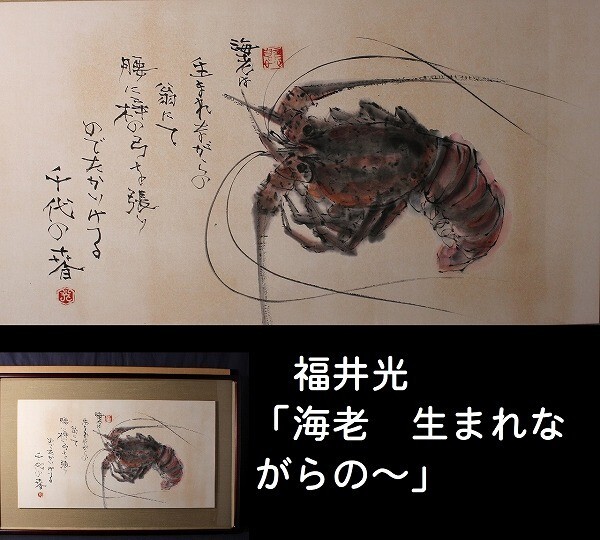 海老は
生まれながらの
翁にて
腰に梓の弓を張り
めでたかりける
千代の春
福井光
「海老　生まれな
がらの〜」